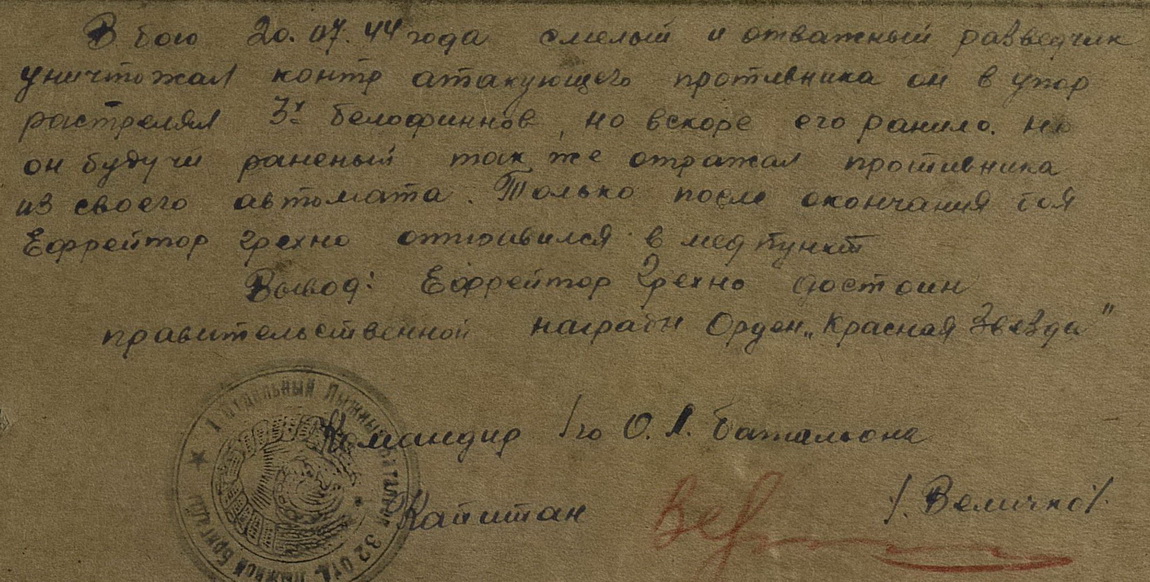 В бою 20.07.44 года смелый и отважный разведчик
уничтожал контр атакующего противника он в упор
растрелял 3х белофиннов, но вскоре его ранило. Но
он будучи раненый так же отражал противника
из своего автомата. Только после окончания боя
Ефрейтор Грехно отправился в мед пункт
Вывод: Ефрейтор Грехно достоин
правительственной награды Орден „Красная Звезда"
Командир 1го О.Л. батальона
Капитан /Величко/
1 Отдельный Лыжный Батальон 32 отд. лыжной бригады